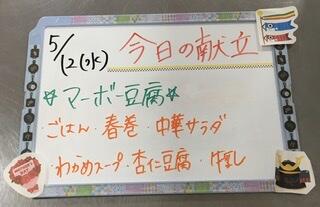 5/12(水)
今日の献立
☆マーボー豆腐☆
ごはん・春巻・中華サラダ
・わかめスープ・杏仁豆腐・牛乳